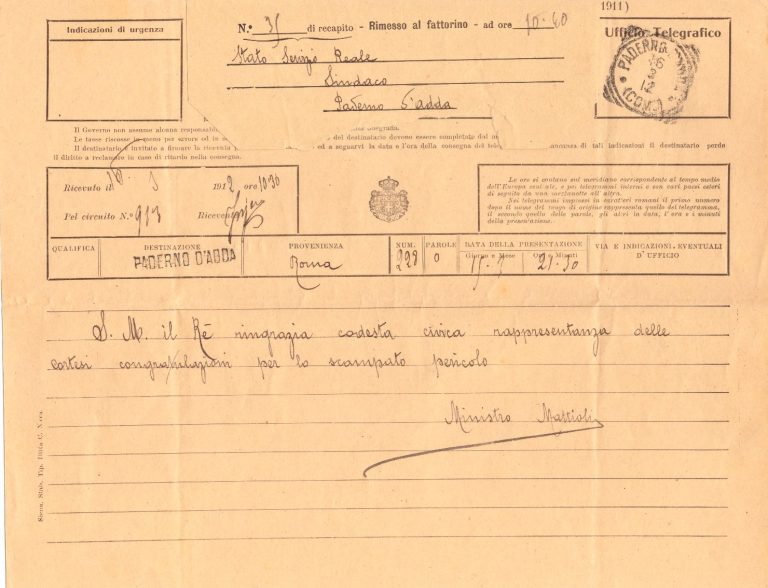 1911)
Indicazioni di urgenza
N.° 35 di recapito - Rimesso al fattorino - ad ore 10.40
Ufficio Telegrafico
Stato Servizio Reale
Sindaco
Paderno d'adda
PADERNO D'ADDA
16
3
12
(COMO)
Il Governo non assume alcuna responsabil
Le tasse riscosse in meno per errore od in se
Il destinatario è invitato a firmare la ricevuta
il diritto a reclamare in caso di ritardo nella consegna.
del destinatario devono essere completate dal
ed a segnarvi la data e l'ora della consegna del tele
mancanza di tali indicazioni il destinatario perde
Ricevuto il 16 3 1912 ore 10.30
Pel circuito N.° 913 Ricevente
Le ore si contano sul meridiano corrispondente al tempo medio
dell'Europa centrale, e pei telegrammi interni e con vari paesi esteri
di seguito da una mezzanotte all'altra.
Nei telegrammi impressi in caratteri romani il primo numero
dopo il nome del luogo di origine rappresenta quello del telegramma,
il secondo quello delle parole, gli altri la data, l'ora e i minuti
della presentazione.
QUALIFICA DESTINAZIONE PROVENIENZA NUM. PAROLE DATA DELLA PRESENTAZIONE VIA E INDICAZIONI EVENTUALI D'UFFICIO
Giorno e Mese Ore e Minuti
PADERNO D'ADDA Roma 229 0 15.3 21.30
S. M. il Rè ringrazia codesta civica rappresentanza delle
cortesi congratulazioni per lo scampato pericolo
Ministro Mattioli
Siena, Stab. Tip. Ditta C. Nava.